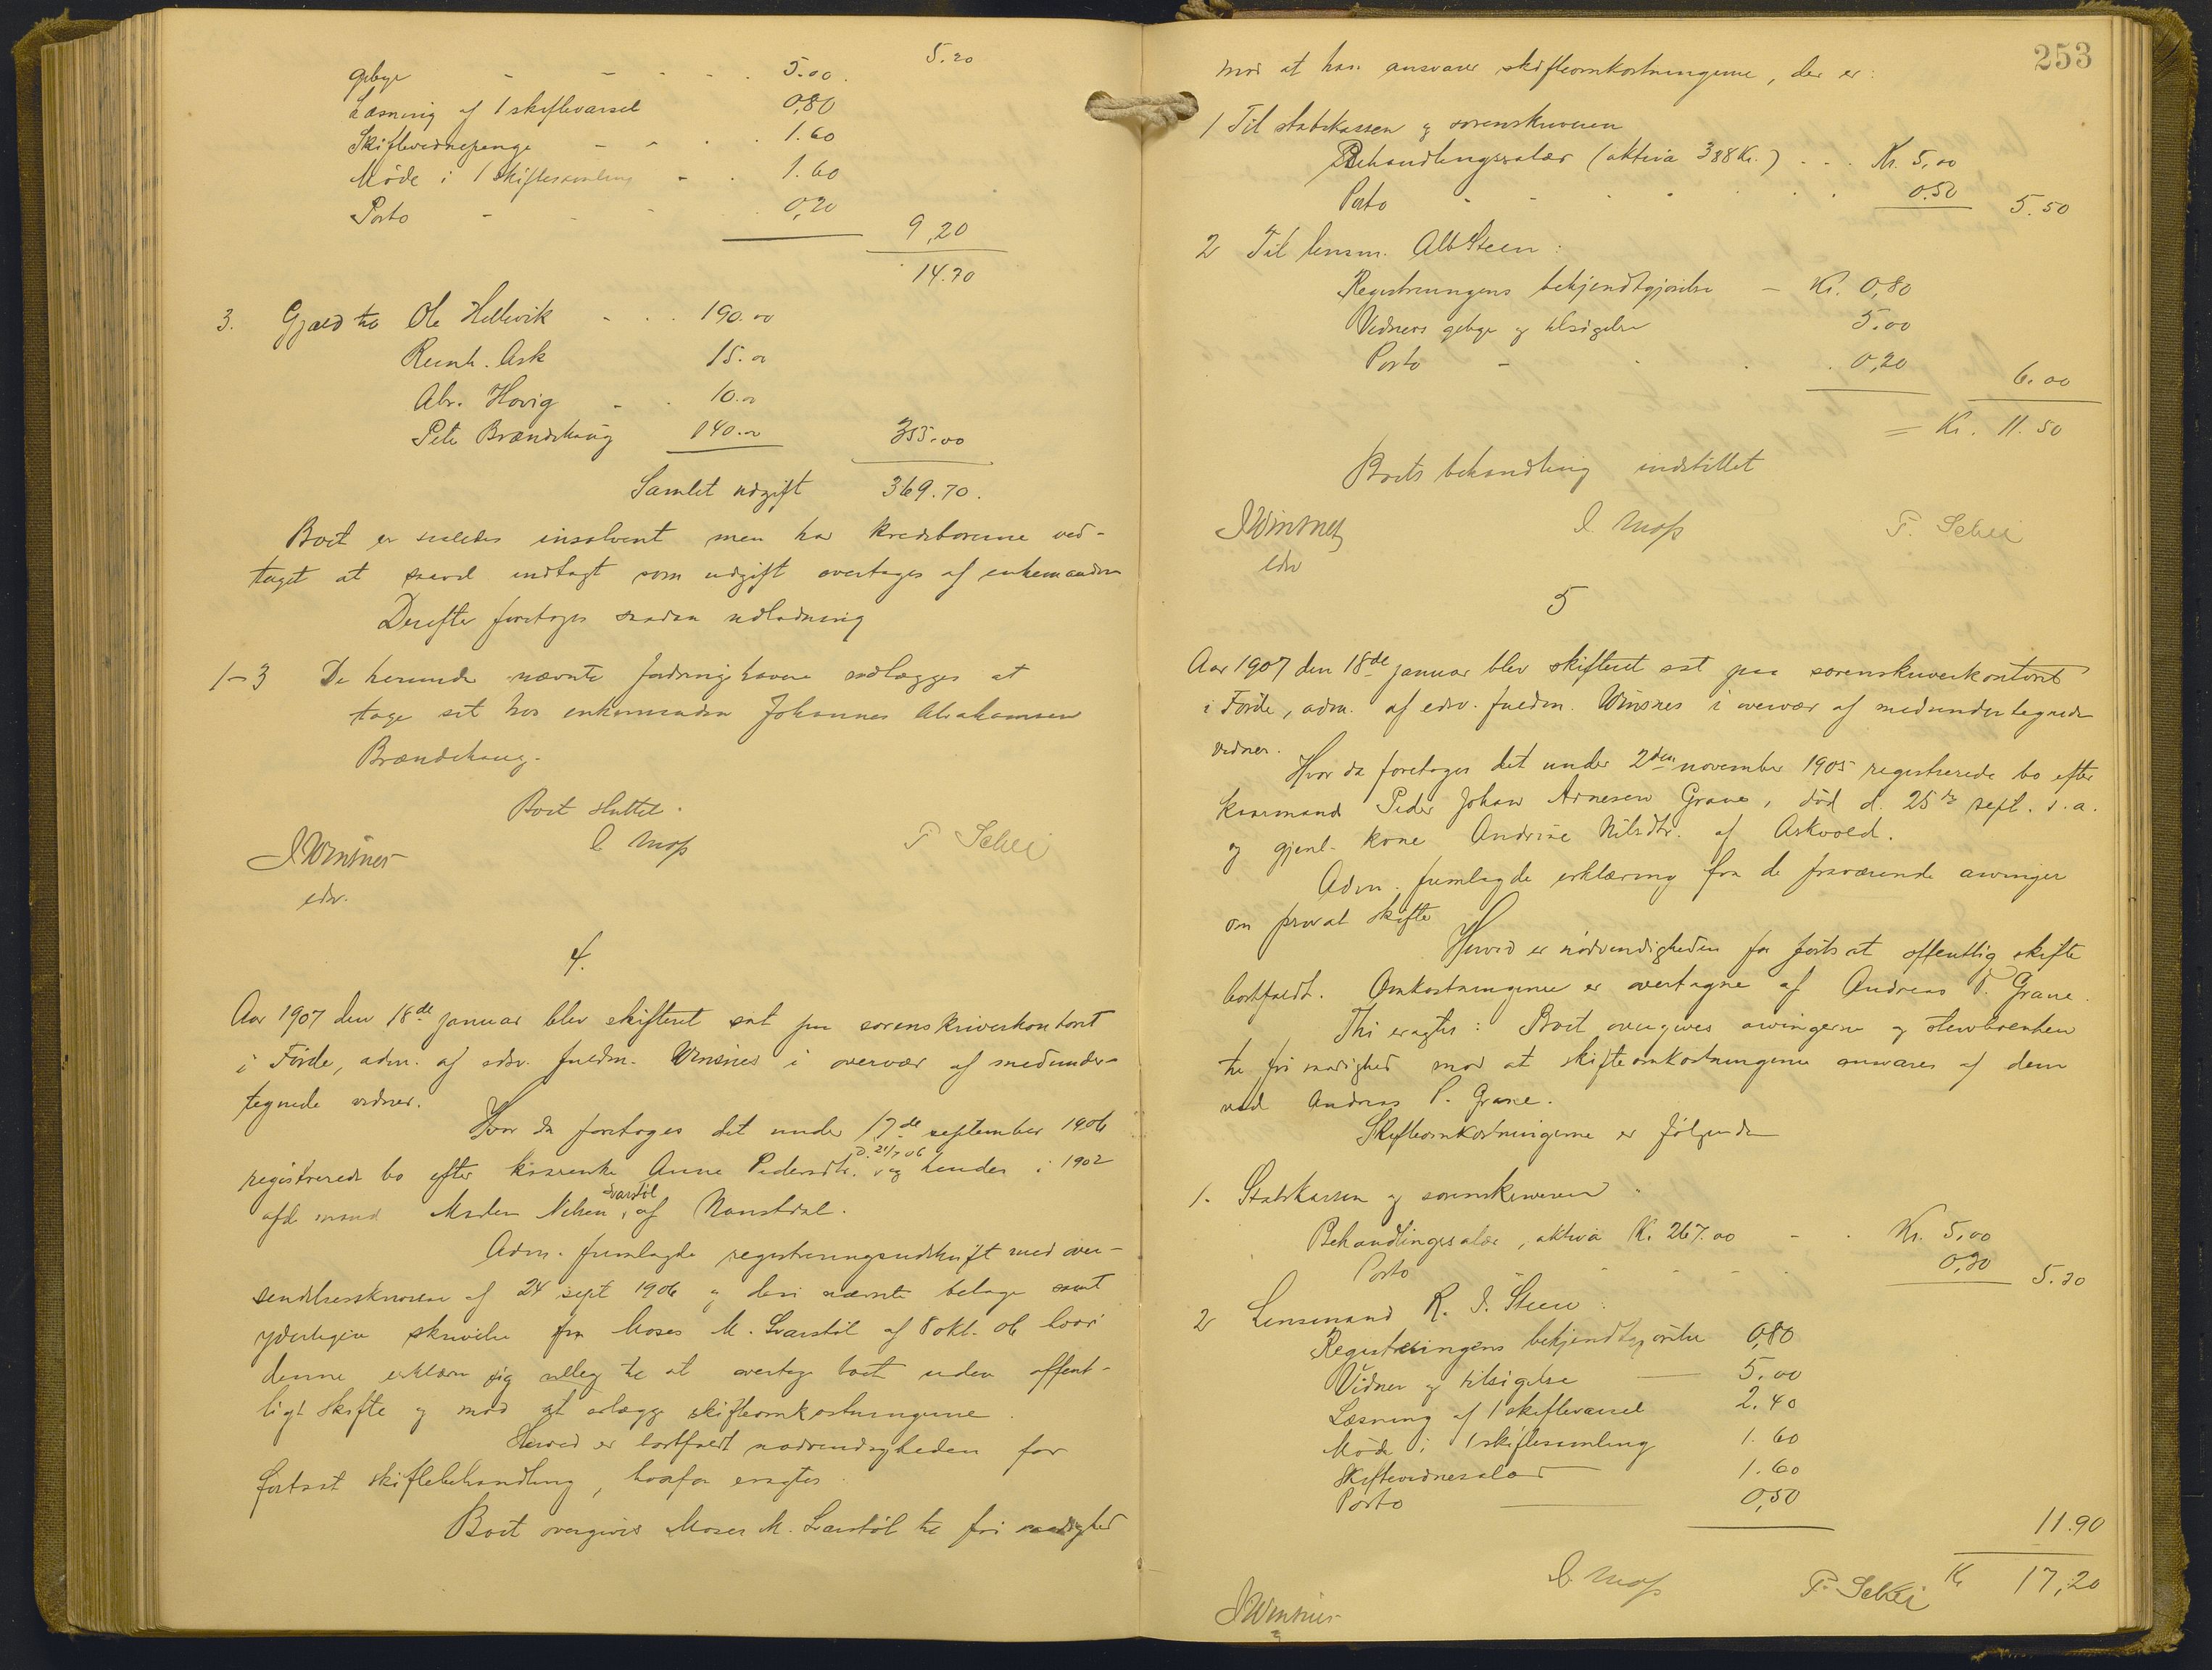 5.20
gebyr - - - - 5.00.
Læsning af 1 skiftevarsel 0,80
Skiftevidnepenge - - - . 1.60
Møde i 1 skiftesamling - . 1.60
Porto - - - . 0,20
9,20
14.70
3. Gjæld til Ole Hellevik - . . 190.00
Reinh. Ask 15.00
Abr. Hovig - . 10.00
Peter Brændehaug 140.00 355.00
Samlet udgift 369.70.
Boet er saaledes insolvent men har kreditorerne ved-
taget at saavel indtægt som udgift overtages af enkemanden
Derefter foretages saadan udlodning
1-3 De herunder nævnte fordringshavere udlægges at
tage sit hos enkemanden Johannes Abrahamsen
Brændehaug.
Boet sluttet.
J Winsnes E. Moss P Schei
edsv.
4.
Aar 1907 den 18de januar blev skifteret sat paa sorenskriverkontoret
i Førde, adm. af edsv. fuldm. Winsnes i overvær af medunder-
tegnede vidner.
Hvor da foretages det under 17de september 1906
registrerede bo efter kaarenke Anne Pedersdtr. D. 21/7 06 og hendes i 1902
afd. mand Mads Nilsen Svarstøl, af Naustdal.
Adm. fremlagde registreringsudskrift med over-
sendelsesskrivelse af 24 sept 1906 og deri nævnte belage samt
yderligere skrivelse fra Moses M. Svarstøl af 8 okt. 06 hvori
denne erklærer sig villig til at overtage boet uden offent-
ligt skifte og mod at erlægge skifteomkostningerne.
Herved er bortfaldt nødvendigheden for
fortsat skiftebehandling, hvorfor eragtes:
Boet overgives Moses M. Svarstøl til fri raadighed
253
mod at han ansvarer skifteomkostningerne, der er:
1 Til statskassen og sorenskriveren
Behandlingssalær (aktiva 388 Kr.) . . . Kr. 5,00
Porto - - - . . . 0.50 5.50
2 Til lensm. Alb Steen:
Registreringens bekjendtgjørelse - Kr. 0,80
Vidners gebyr og tilsigelse 5.00
Porto - - . . 0,20 6.00
= Kr. 11.50
Boets behandling indstillet
J Winsnes E. Moss P. Schei
edsv
5
Aar 1907 den 18de januar blev skifteret sat paa sorenskriverkontoret
i Førde, adm. af edsv. fuldm. Winsnes i overvær af medundertegnede
vidner.
Hvor da foretages det under 2den november 1905 registrerede bo efter
kaarmand Peder Johan Arnesen Grane, død d. 25de sept. s.a.
og gjenl. kone Andrine Nilsdtr. af Askvold.
Adm. fremlagde erklæring fra de fraværende arvinger
om privat skifte
Herved er nødvendigheden for fortsat offentlig skifte
bortfaldt. Omkostningerne er overtagne af Andreas P. Grane.
Thi eragtes: Boet overgives arvingerne og stervboenken
til fri raadighed mod at skifteomkostningerne ansvares af dem
ved Andreas P. Grane.
Skifteomkostningerne er følgende
1. Statskassen og sorenskriveren:
Behandlingssalær, aktiva Kr. 267.00 - . Kr. 5,00
Porto - - - . 0,30 5.30
2 Lensmand R. J. Steen:
Registreringens bekjendtgjørelse 0,80
Vidner og tilsigelse 5.00
Læsning af 1 skiftevarsel 2.40
Møde i 1 skiftesamling 1.60
Skiftevidnesalær 1.60
Porto 0,50
11.90
Kr 17,20
J Winsnes E. Moss P. Schei